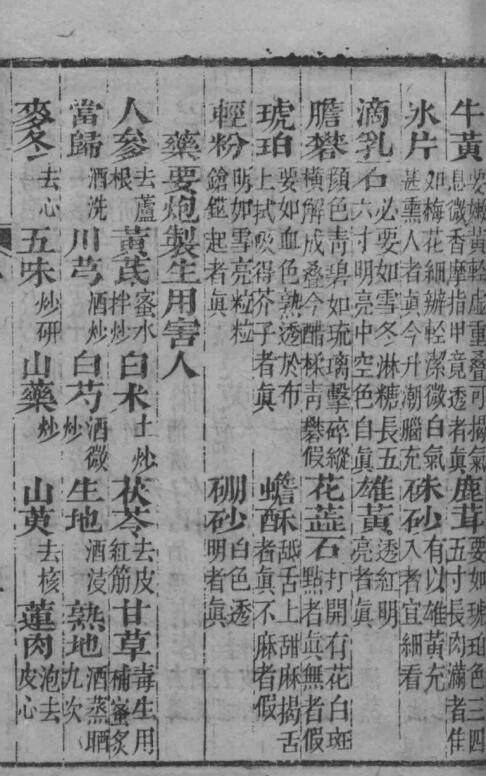 牛黃要嫩黃輕虛重叠可揭氣息微香摩指甲竟透者眞鹿茸要如琥珀色三四五寸長肉滿者佳
氷片如梅花細瓣輕潔微白氣甚熏人者眞今升潮腦充硃砂有以雄黃充入者宜細看
滴乳石必要如雪冬淋糖長五六寸明亮中空色自眞雄黃透紅明亮者眞
膽礬顏色青碧如琉璃擊碎縱橫解成叠今醋楺青礬假花蕋石打開有花白斑點者眞無者假
琥珀要如血色熟透於布上拭吸得芥子者眞蟾酥舐舌上甜麻揭舌者眞不麻者假
輕粉明如雪亮粒粒鎗鋞起者眞硼砂白色透明者眞
藥要炮製生用害人
人參去蘆根黃茋蜜水拌炒白术土炒茯苓去皮紅筋甘草毒生用補蜜炙
當歸酒洗川芎酒炒白芍酒微炒生地酒浸熟地酒蒸晒九次
麥冬去心五味炒研山藥炒山萸去核蓮肉泡去皮心